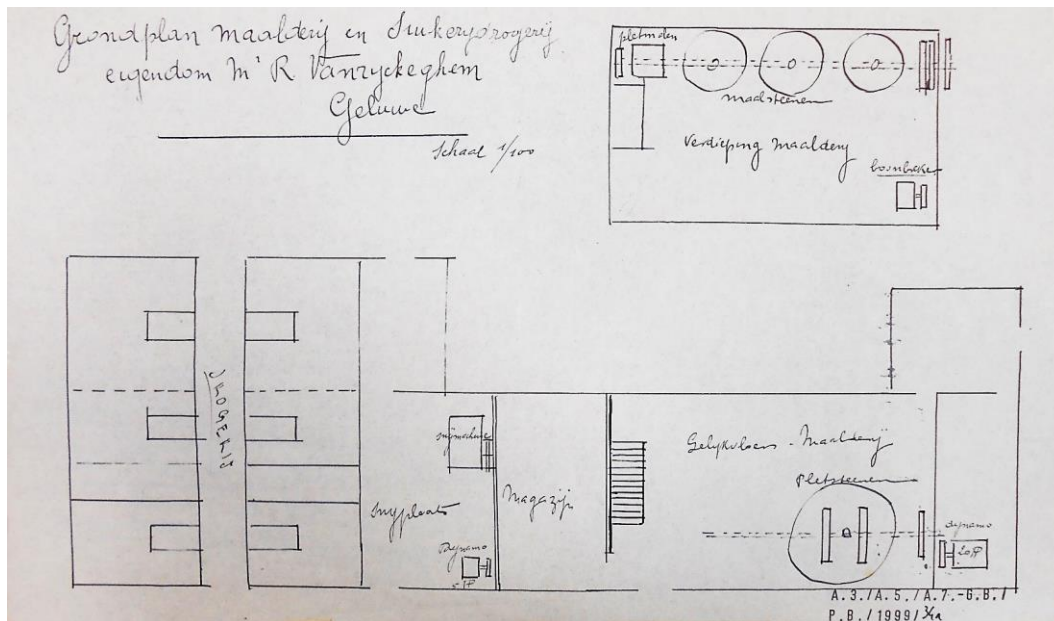 Grondplan maalderij en Suikerijdrogerij
eigendom Mr R Vanryckeghem
Geluwe
Schaal 1/100
pletmolen
maalsteenen
Verdieping maalderij
boonbreker
DROGERIJ
snijmachine
snijplaats
Dynamo
5 HP
Magazijn
Gelijkvloers - Maalderij
Pletsteenen
dynamo
20 HP
A.3./A.5./A.7.-G.B./
P.B./1999/